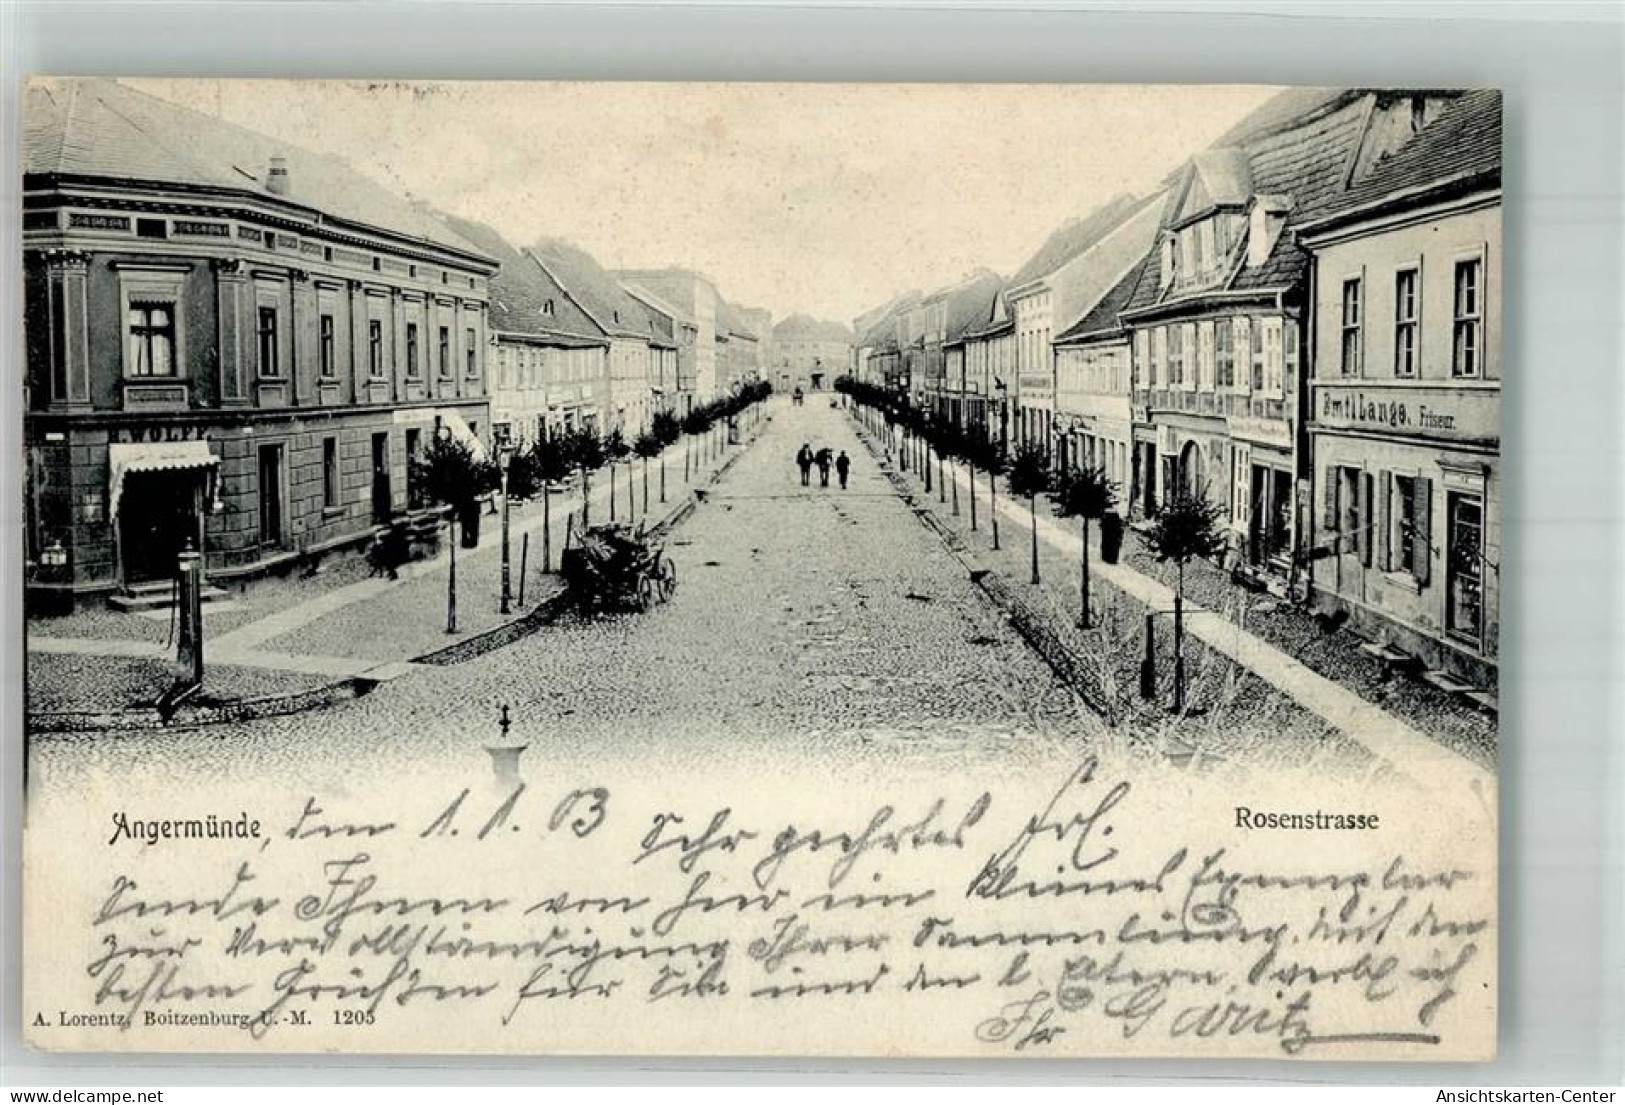 WOLFF
Emil Lange. Friseur.
Angermünde, den 1. 1. 03
Rosenstrasse
Sehr geehrtes Frl.
Sende Ihnen von hier ein kleines Exemplar
zur Vervollständigung Ihrer Sammlung. Mit den
besten Grüßen für Sie und den l. Eltern, verbl. ich
Ihr Garitz
A. Lorentz, Boitzenburg U.-M. 1205
delcampe.net
Ansichtskarten-Center